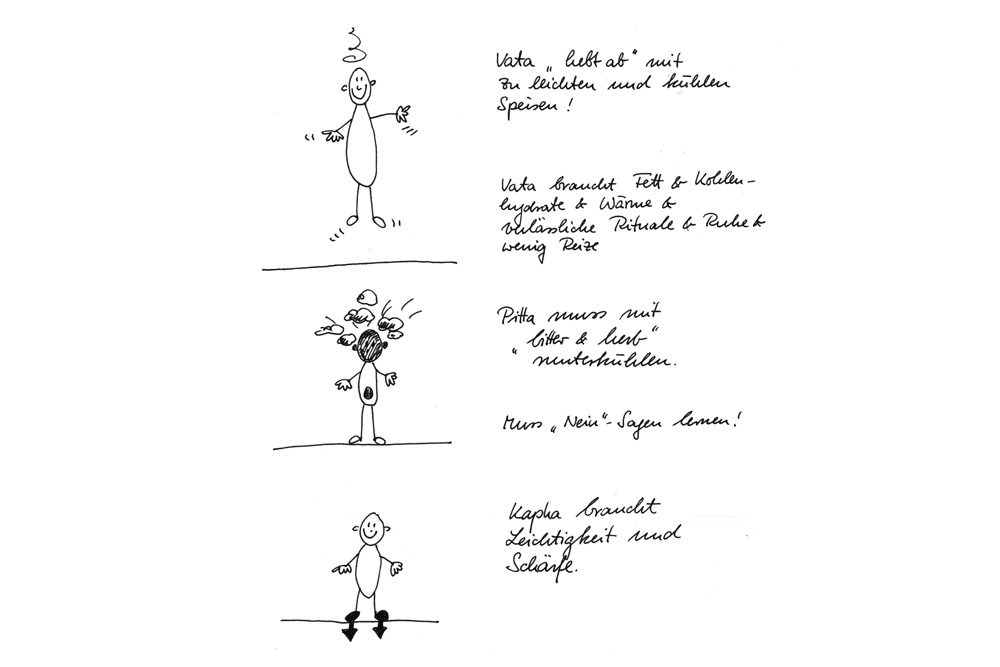 Vata „hebt ab“ mit
zu leichten und kühlen
Speisen!
Vata braucht Fett & Kohlen-
hydrate & Wärme &
verlässliche Rituale & Ruhe &
wenig Reize
Pitta muss mit
"bitter & herb"
runterkühlen.
Muss „Nein“-Sagen lernen!
Kapha braucht
Leichtigkeit und
Schärfe.